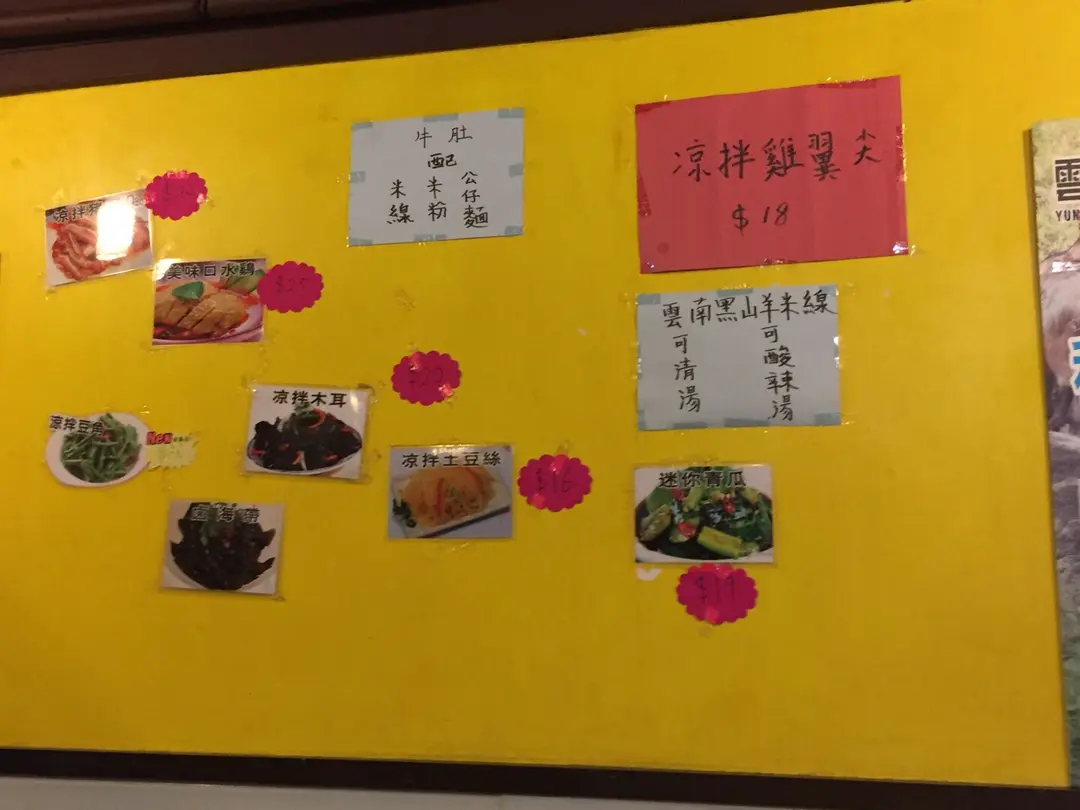 凉拌
美味口水鷄
$25
凉拌豆角
New
凉拌木耳
凉拌土豆絲
$16
海帶
牛肚
配
米線
米粉
公仔麵
凉拌雞翼尖
$18
雲南黑山羊米線
可清湯
可酸辣湯
迷你青瓜
$19
雲
YUN